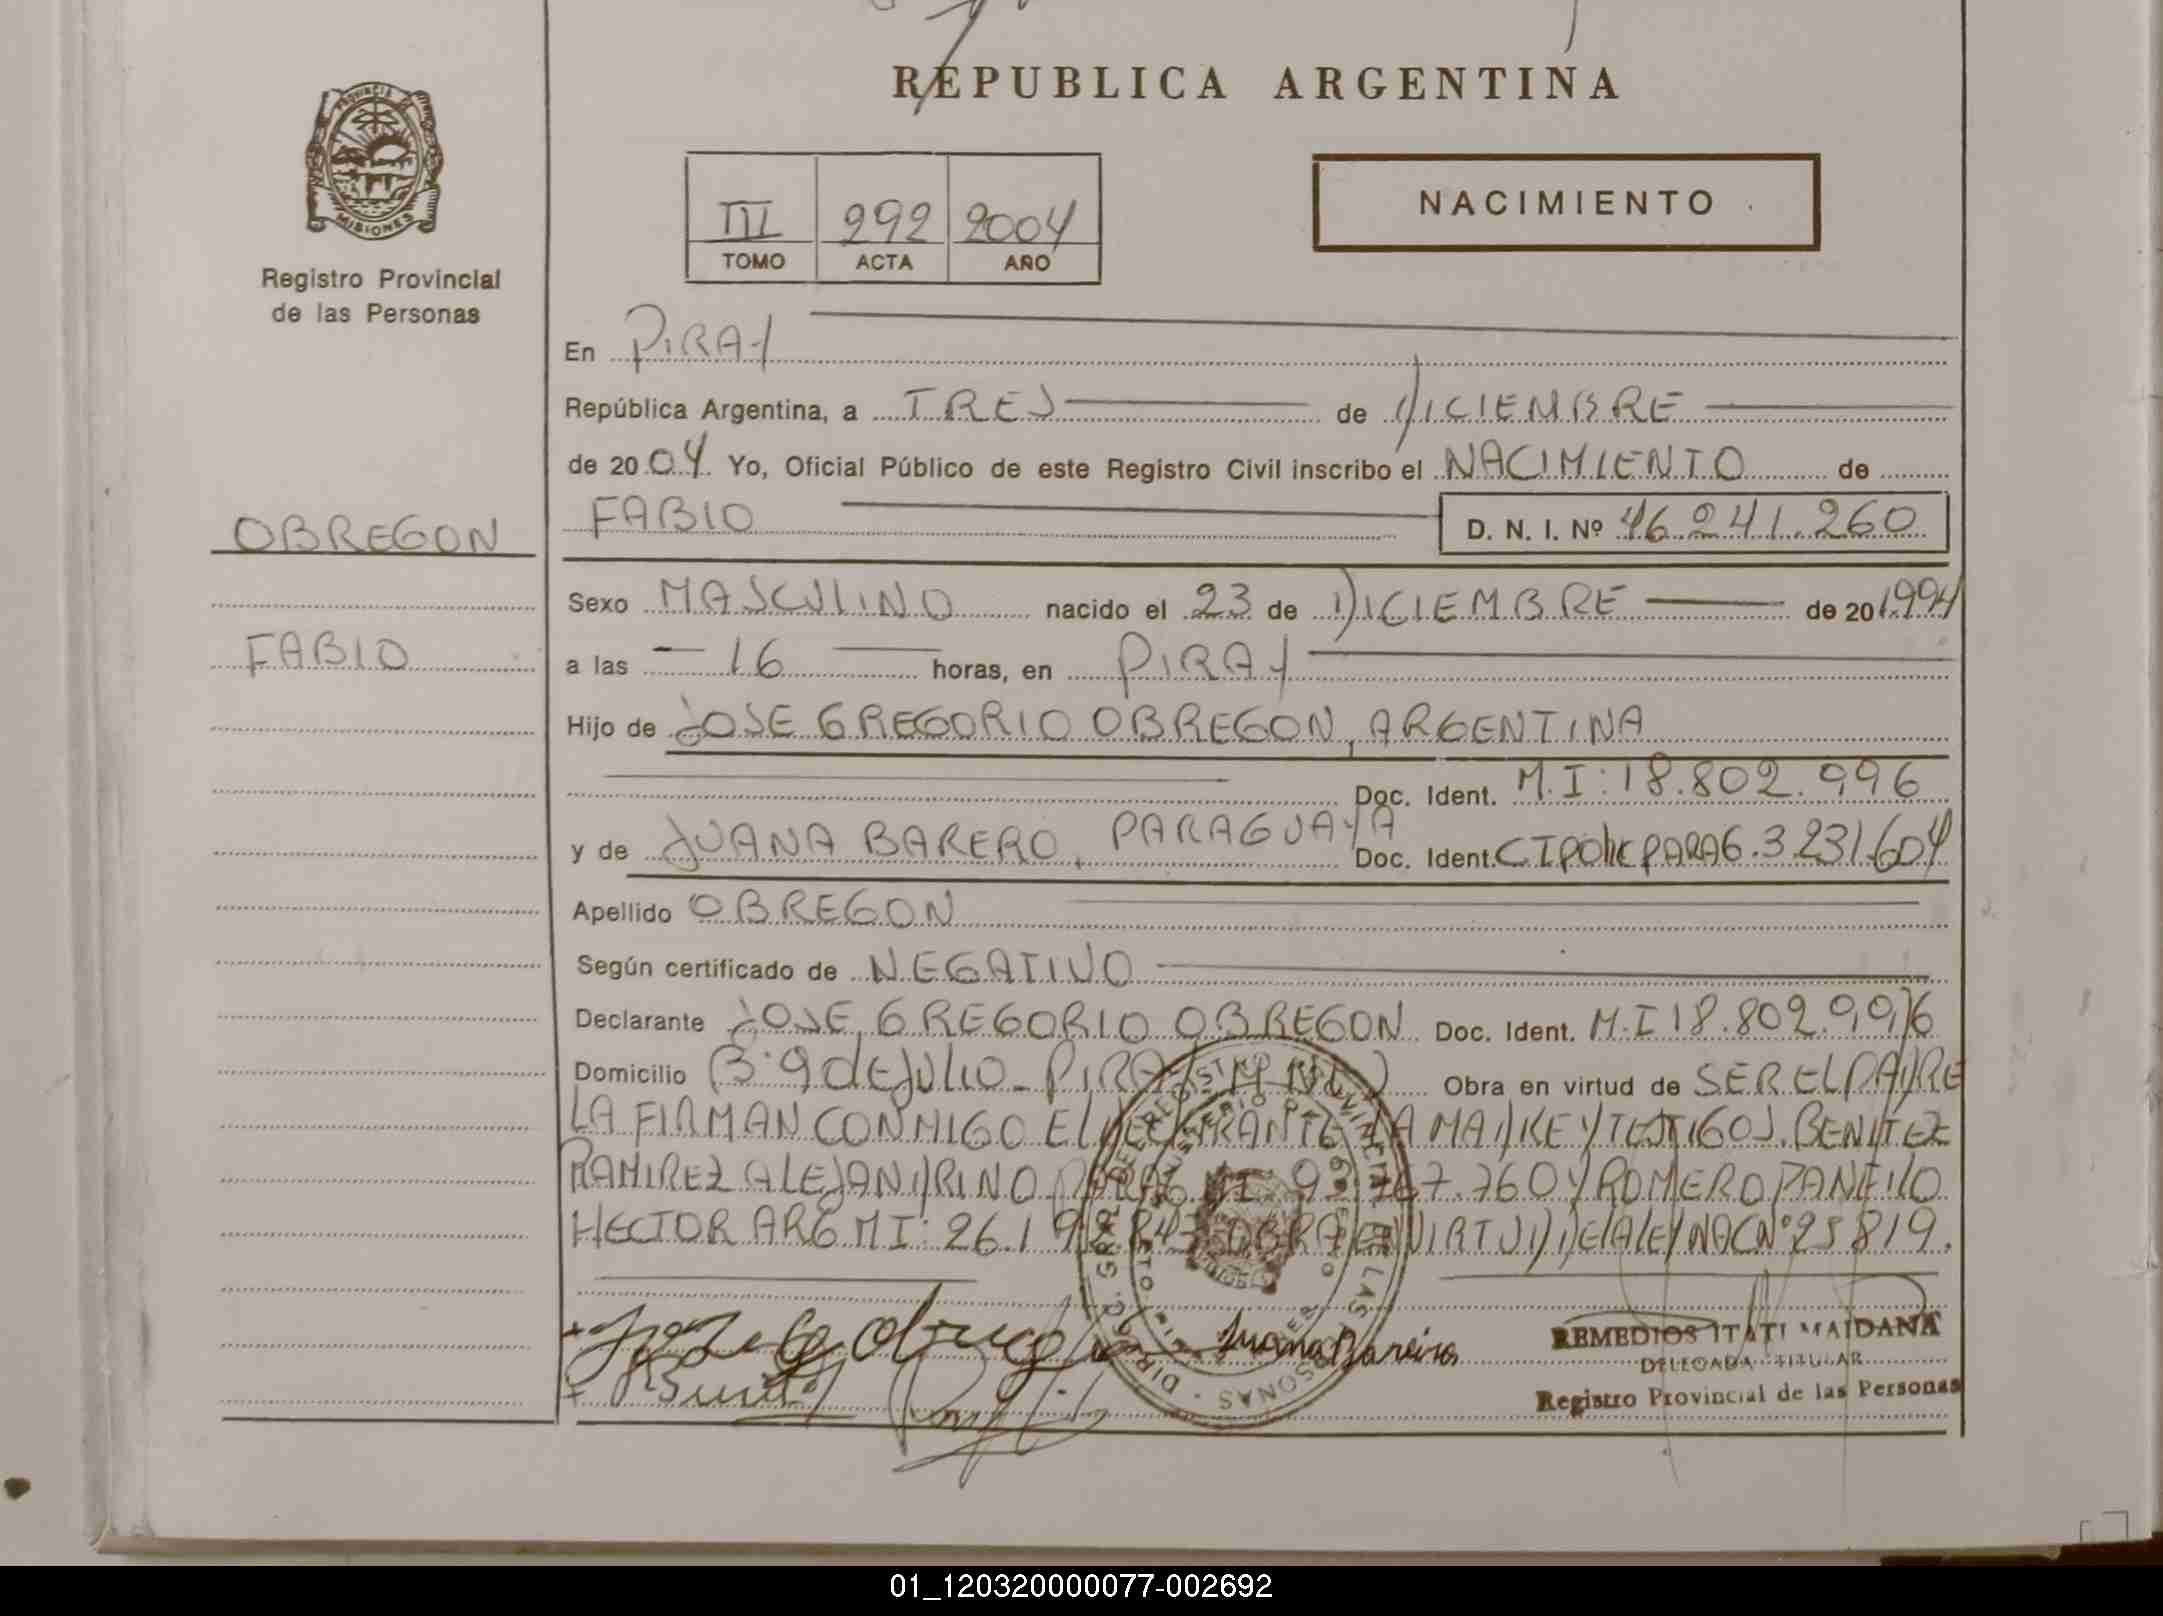 REPUBLICA ARGENTINA
PROVINCIA DE
MISIONES
Registro Provincial
de las Personas
III 292 2004
TOMO ACTA AÑO
NACIMIENTO
En PIRAY
República Argentina, a TRES de DICIEMBRE
de 2004 Yo, Oficial Público de este Registro Civil inscribo el NACIMIENTO de
OBREGON
FABIO
FABIO D. N. I. Nº 46.241.260
Sexo MASCULINO nacido el 23 de DICIEMBRE de 20 1994
a las 16 horas, en PIRAY
Hijo de JOSE GREGORIO OBREGON, ARGENTINA
Doc. Ident. M.I: 18.802.996
y de JUANA BARERO, PARAGUAYA Doc. Ident. CIPOLICPARAG.3.231.604
Apellido OBREGON
Según certificado de NEGATIVO
Declarante JOSE GREGORIO OBREGON Doc. Ident. M.I 18.802.996
Domicilio Bº 9 dEJULIO-PIRAY Obra en virtud de SER EL PADRE
LA FIRMAN CONMIGO EL DECLARANTE LA MADRE Y TESTIGOS. BENITEZ
RAMIREZ ALEJANDRINO 767.760 Y ROMERO PANFILO
HECTOR ARG MI: 26.1 OBRA EN VIRTUD DE LA LEY NAC Nº 25 819.
Juana Bareiro
REMEDIOS ITATI MAIDANA
DELEGADA TITULAR
Registro Provincial de las Personas
01_120320000077-002692